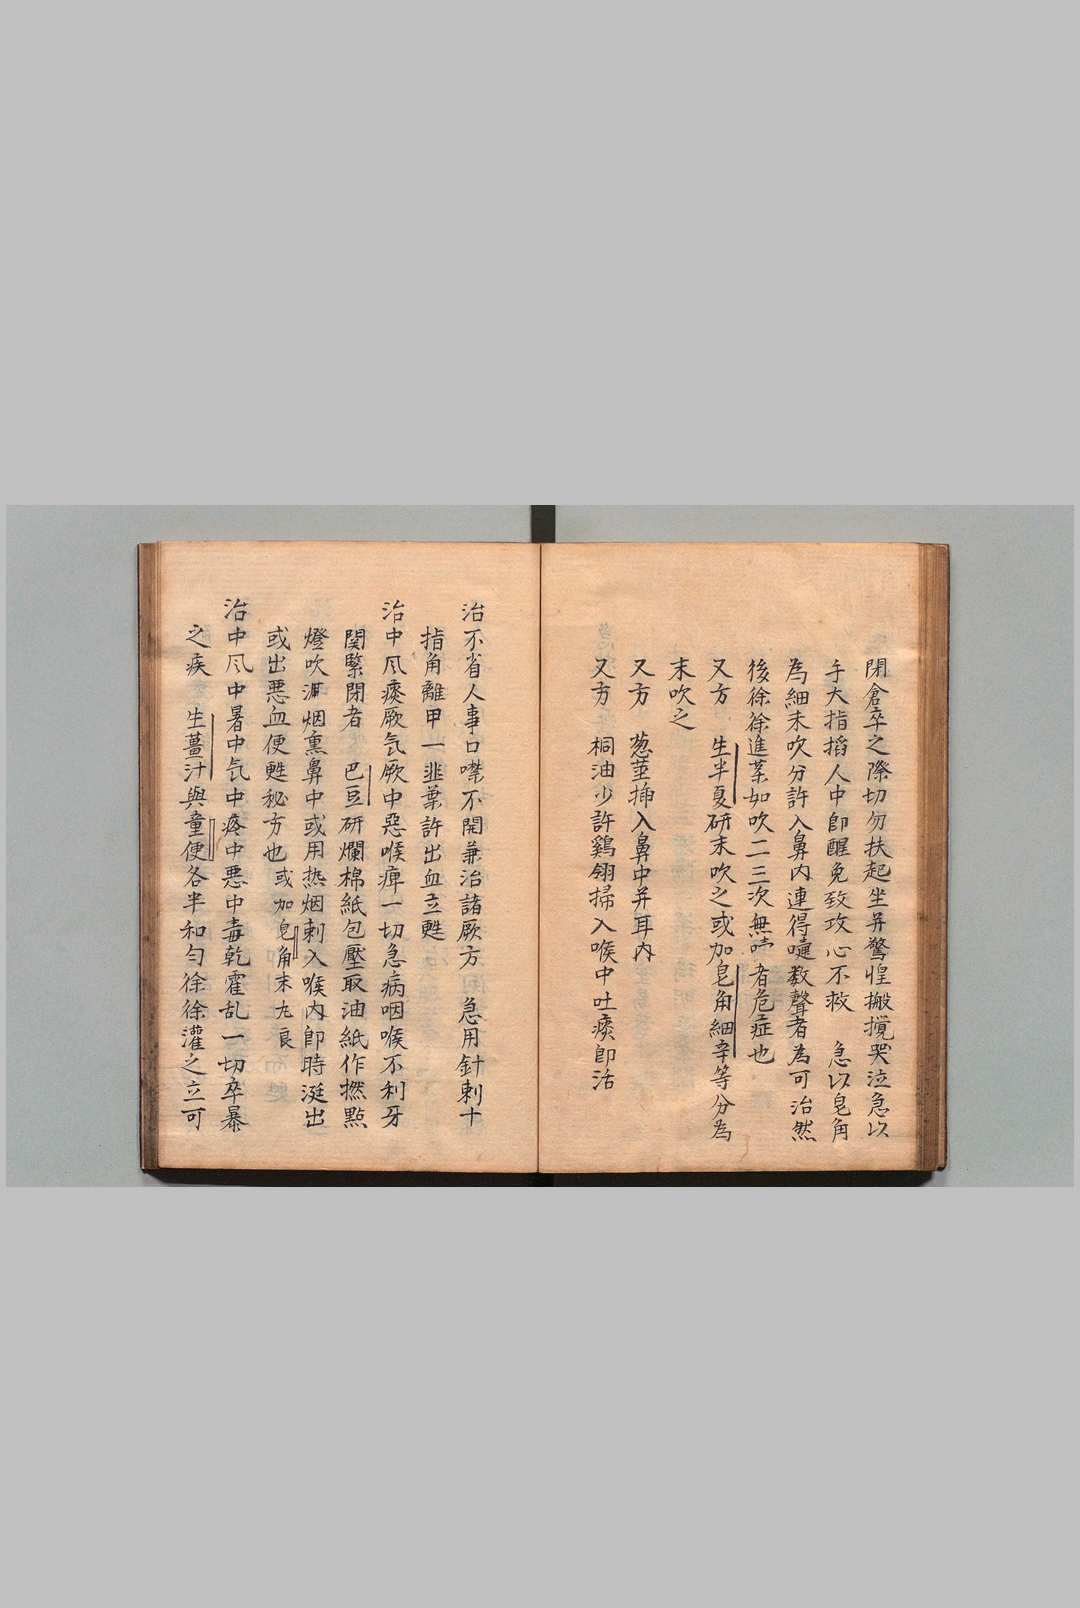 閉倉卒之際切勿扶起坐并驚惶搬攪哭泣急以
手大指搯人中即醒免致攻心不救　急以皂角
為細末吹分許入鼻內連得嚏數聲者為可治然
後徐徐進藥如吹二三次無嚏者危症也
又方　生半夏研末吹之或加皂角細辛等分為
末吹之
又方　葱莖挿入鼻中并耳內
又方　桐油少許鷄翎掃入喉中吐痰即活
治不省人事口噤不開兼治諸厥方　急用針刺十
指角離甲一韭葉許出血立甦
治中風痰厥氣厥中惡喉痺一切急病咽喉不利牙
関緊閉者　巴豆研爛棉紙包壓取油紙作撚點
燈吹滅烟熏鼻中或用热烟刺入喉內即時涎出
或出悪血便甦秘方也或加皂角末尤良
治中風中暑中氣中痰中悪中毒乾霍乱一切卒暴
之疾　生薑汁與童便各半和匀徐徐灌之立可